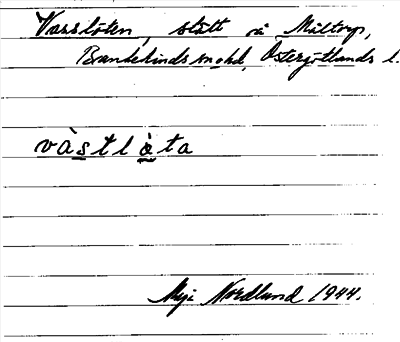 Vasslöten, slått på Måltorp,
Bankekinds snhd, Östergötlands l.
vàstlǫ̀ta
Maj Nordlund 1944.